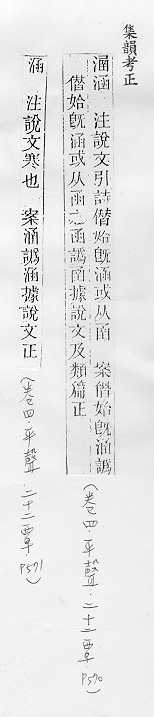 集韻考正
𣹢涵 注說文引詩僭始旣涵或从函 案僭始旣涵譌
僭始旣涵或从函之函譌圅據說文及類篇正
(卷四.平聲.二十二覃.P590)
涵 注說文寒也 案涵譌涵據說文正
(卷四.平聲.二十二覃.P591)